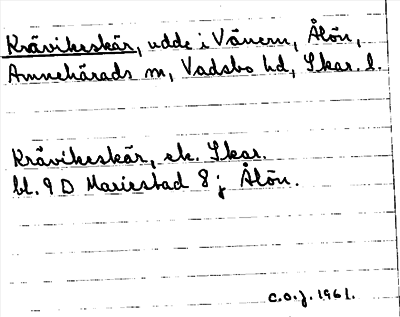 Kråvikeskär, udde i Vänern, Ålön,
Amnehärads sn, Vadsbo hd, Skar. l.
Kråvikeskär, ek. Skar.
bl. 9 D Mariestad 8 j Ålön.
C.O.J. 1961.